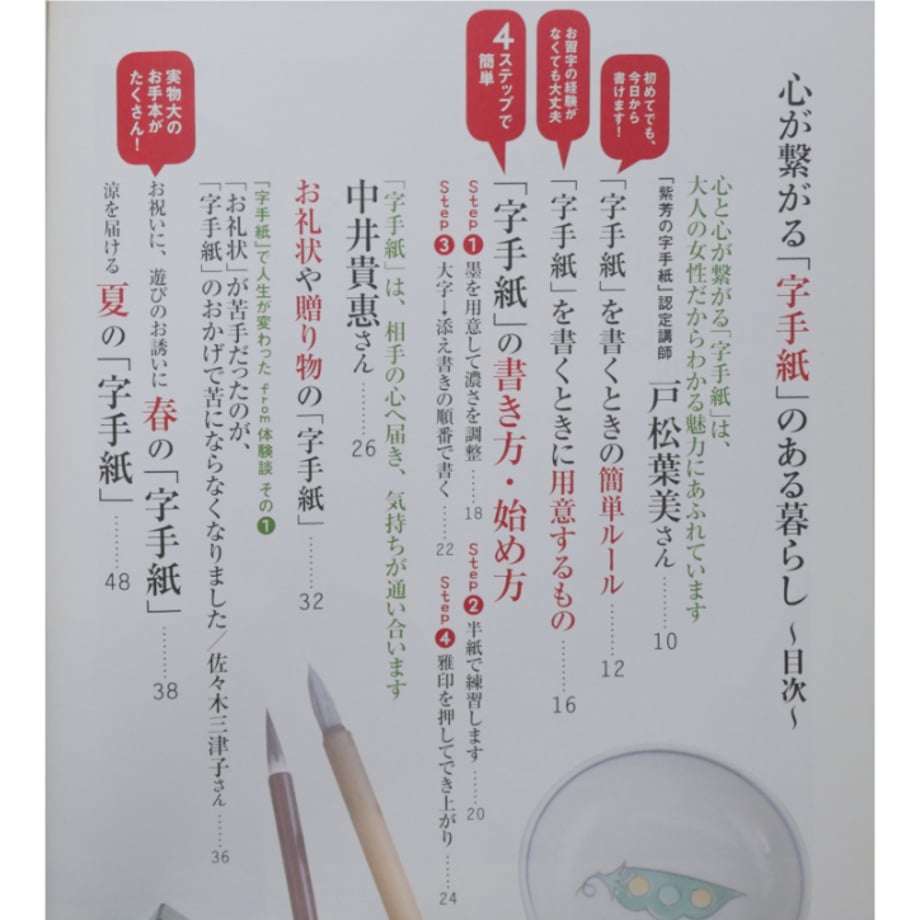 心が繋がる「字手紙」のある暮らし 〜目次〜
心と心が繋がる「字手紙」は、
大人の女性だからわかる魅力にあふれています
「紫芳の字手紙」認定講師 戸松葉美さん ……… 10
初めてでも、
今日から
書けます！
「字手紙」を書くときの簡単ルール ……… 12
お習字の経験が
なくても大丈夫
「字手紙」を書くときに用意するもの ……… 16
4ステップで
簡単
「字手紙」の書き方・始め方
Step❶ 墨を用意して濃さを調整 ……… 18
Step❷ 半紙で練習します ……… 20
Step❸ 大字→添え書きの順番で書く ……… 22
Step❹ 雅印を押してでき上がり ……… 24
「字手紙」は、相手の心へ届き、気持ちが通い合います
中井貴惠さん ……… 26
お礼状や贈り物の「字手紙」 ……… 32
「字手紙」で人生が変わった from体験談 その❶
「お礼状」が苦手だったのが、
「字手紙」のおかげで苦にならなくなりました／佐々木三津子さん ……… 36
実物大の
お手本が
たくさん！
お祝いに、遊びのお誘いに 春の「字手紙」 ……… 38
涼を届ける 夏の「字手紙」 ……… 48